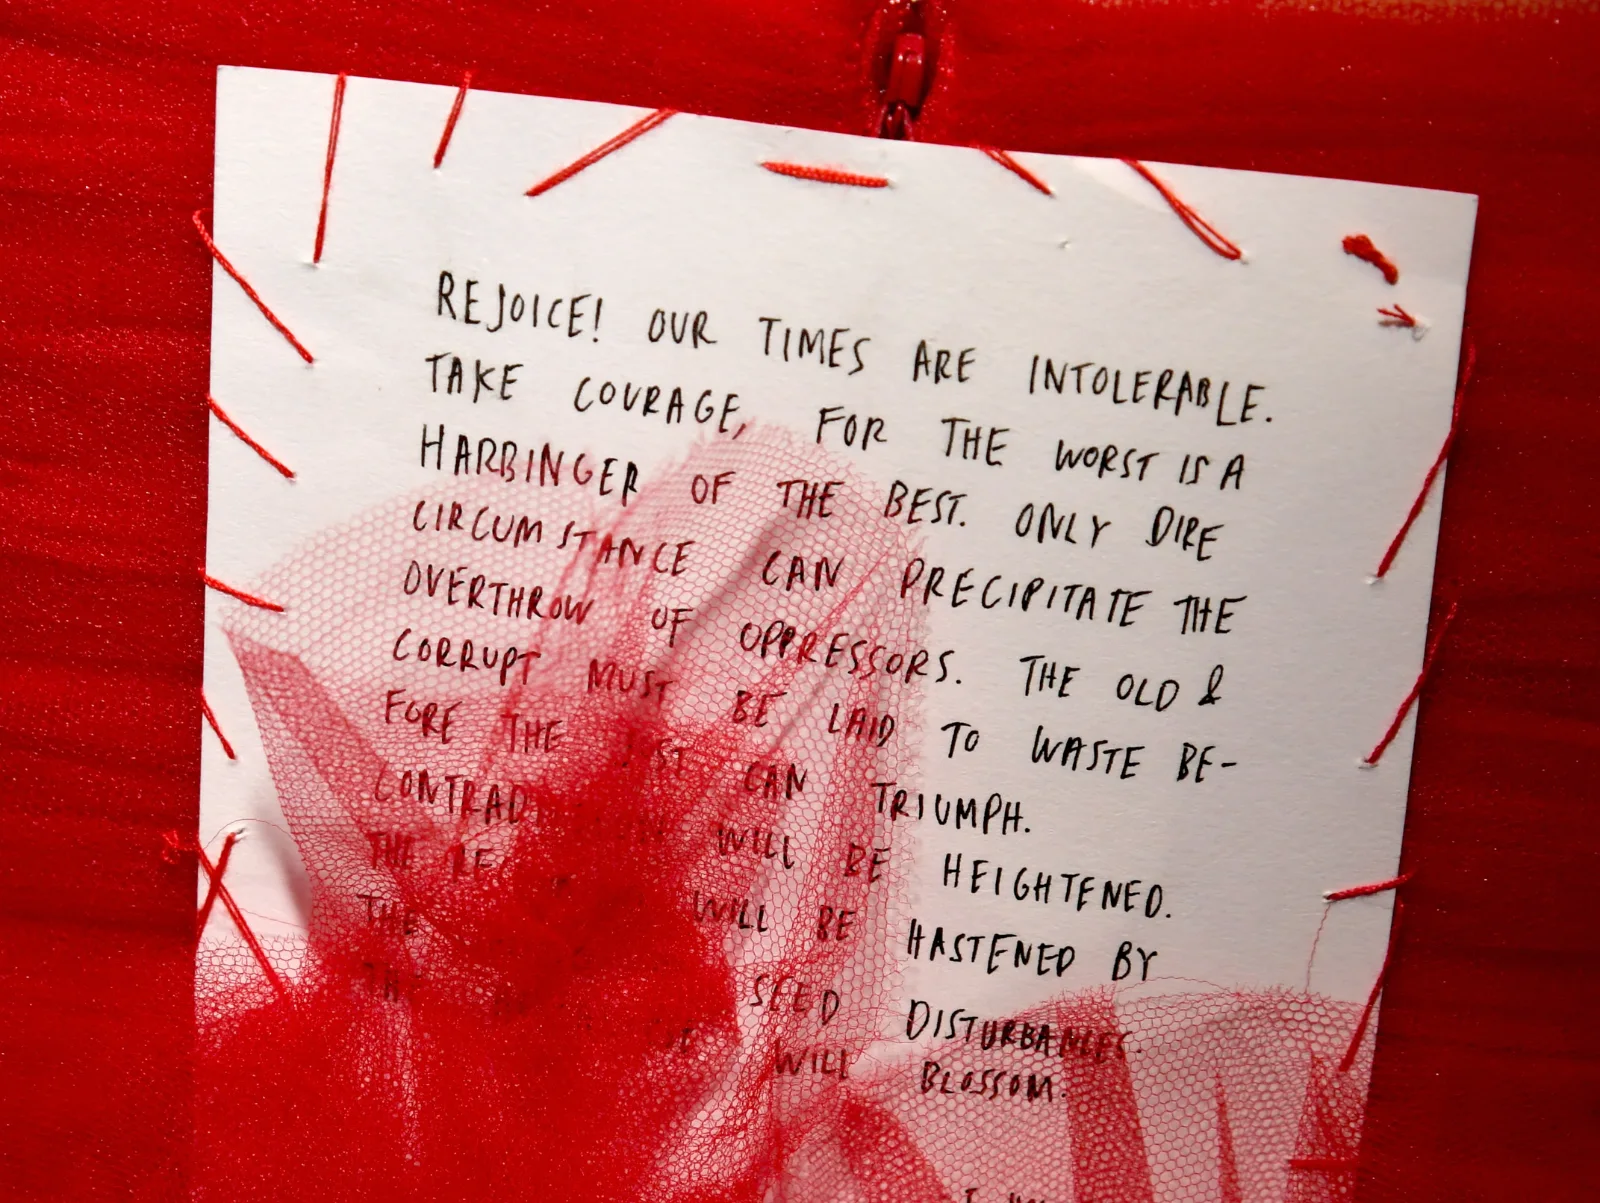 REJOICE! OUR TIMES ARE INTOLERABLE.
TAKE COURAGE, FOR THE WORST IS A
HARBINGER OF THE BEST. ONLY DIRE
CIRCUMSTANCE CAN PRECIPITATE THE
OVERTHROW OF OPPRESSORS. THE OLD &
CORRUPT MUST BE LAID TO WASTE BE-
FORE THE JUST CAN TRIUMPH.
WILL BE HEIGHTENED.
THE WILL BE HASTENED BY
THE SEED DISTURBANCES.
WILL BLOSSOM.